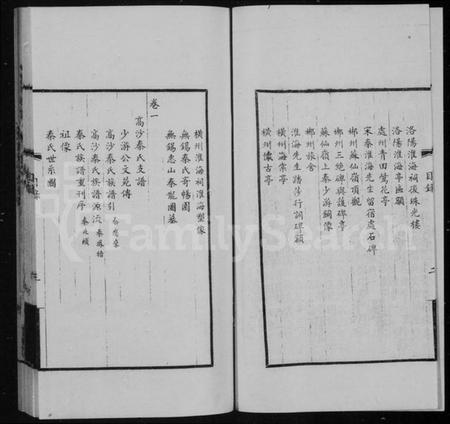 目錄
二
洛陽淮海祠後珠光樓
洛陽淮海亭匾額
處州青田鶯花亭
宋秦淮海先生留宿處石碑
郴州蘇仙嶺頂觀
郴州三絕碑與護碑亭
蘇仙嶺上秦少游銅像
郴州旅舍
淮海先生踏莎行詞碑額
橫州海棠亭
橫州懷古亭
橫州淮海祠淮海塑像
無錫秦氏寄暢園
無錫惠山秦龍圖墓
卷一
高沙秦氏支譜
少游公文苑傳
高沙秦氏族譜引
高沙秦氏族譜源流
秦氏族譜重刊序
祖像
秦氏世系圖
FamilySearch